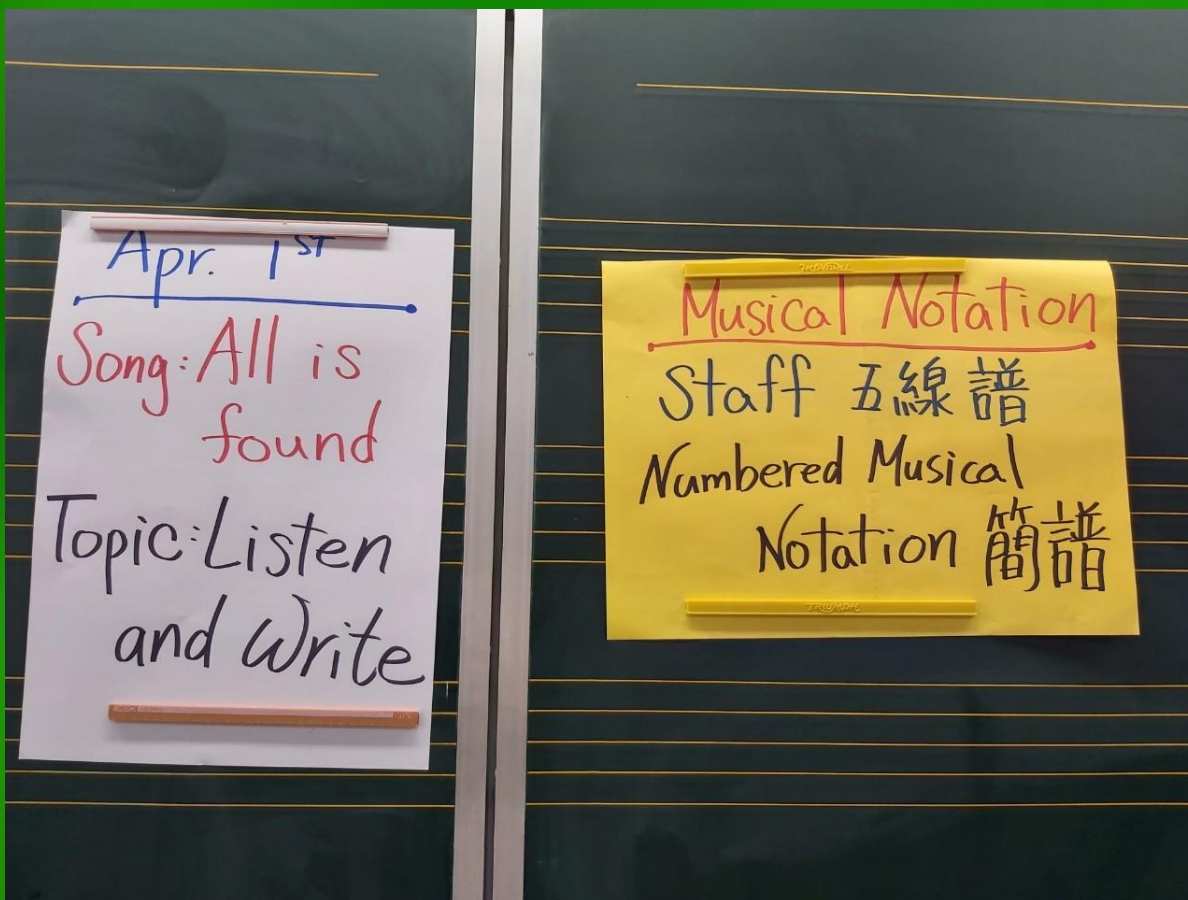 Apr. 1ST
Song: All is
found
Topic: Listen
and Write
Musical Notation
Staff 五線譜
Numbered Musical
Notation 簡譜
TRIUMPH